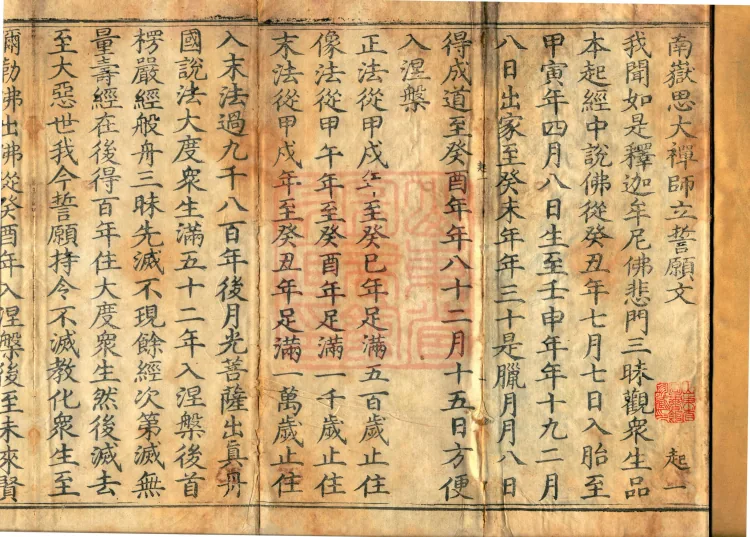 南嶽思大禪師立誓願文 起一
我聞如是釋迦牟尼佛悲門三昧觀衆生品
本起經中說佛從癸丑年七月七日入胎至
甲寅年四月八日生至壬申年年十九二月
八日出家至癸未年年三十是臘月月八日
得成道至癸酉年年八十二月十五日方便
入涅槃
正法從甲戌年至癸巳年足滿五百歲止住
像法從甲午年至癸酉年足滿一千歲止住
末法從甲戌年至癸丑年足滿一萬歲止住
入末法過九千八百年後月光菩薩出真丹
國說法大度衆生滿五十二年入涅槃後首
楞嚴經般舟三昧先滅不現餘經次第滅無
量壽經在後得百年住大度衆生然後滅去
至大惡世我今誓願持令不滅教化衆生至
彌勒佛出佛從癸酉年入涅槃後至未來賢